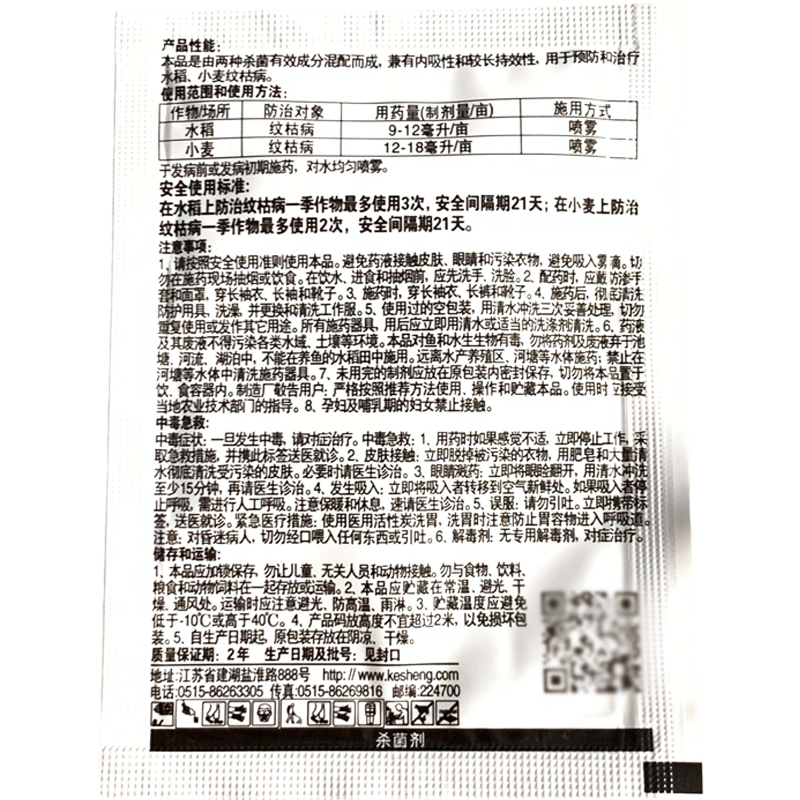 产品性能：
本品是由两种杀菌有效成分混配而成，兼有内吸性和较长持效性，用于预防和治疗
水稻、小麦纹枯病。
使用范围和使用方法：
作物/场所 防治对象 用药量(制剂量/亩) 施用方式
水稻 纹枯病 9-12毫升/亩 喷雾
小麦 纹枯病 12-18毫升/亩 喷雾
于发病前或发病初期施药，对水均匀喷雾。
安全使用标准：
在水稻上防治纹枯病一季作物最多使用3次，安全间隔期21天；在小麦上防治
纹枯病一季作物最多使用2次，安全间隔期21天。
注意事项：
1、请按照安全使用准则使用本品。避免药液接触皮肤、眼睛和污染衣物，避免吸入雾滴。切
勿在施药现场抽烟或饮食。在饮水、进食和抽烟前，应先洗手、洗脸。2、配药时，应戴防渗手
套和面罩，穿长袖衣、长裤和靴子。3、施药时，穿长袖衣、长裤和靴子。4、施药后，彻底清洗
防护用具，洗澡，并更换和清洗工作服。5、使用过的空包装，用清水冲洗三次妥善处理，切勿
重复使用或发作其它用途。所有施药器具，用后应立即用清水或适当的洗涤剂清洗。6、药液
及其废液不得污染各类水域、土壤等环境。本品对鱼和水生生物有毒，勿将药剂及废液弃于池
塘、河流、湖泊中，不能在养鱼的水稻田中施用。远离水产养殖区、河塘等水体施药；禁止在
河塘等水体中清洗施药器具。7、未用完的制剂应放在原包装内密封保存，切勿将本品置于
饮、食容器内。制造厂敬告用户：严格按照推荐方法使用、操作和贮藏本品。使用时应接受
当地农业技术部门的指导。8、孕妇及哺乳期的妇女禁止接触。
中毒急救：
中毒症状：一旦发生中毒，请对症治疗。中毒急救：1、用药时如果感觉不适，立即停止工作，采
取急救措施，并携此标签送医就诊。2、皮肤接触：立即脱掉被污染的衣物，用肥皂和大量清
水彻底清洗受污染的皮肤。必要时请医生诊治。3、眼睛溅药：立即将眼睑翻开，用清水冲洗
至少15分钟，再请医生诊治。4、发生吸入：立即将吸入者转移到空气新鲜处。如果吸入者停
止呼吸，需进行人工呼吸。注意保暖和休息，速请医生诊治。5、误服：请勿引吐。立即携带标
签，送医就诊。紧急医疗措施：使用医用活性炭洗胃，洗胃时注意防止胃容物进入呼吸道。
注意：对昏迷病人，切勿经口喂入任何东西或引吐。6、解毒剂：无专用解毒剂，对症治疗。
储存和运输：
1、本品应加锁保存，勿让儿童、无关人员和动物接触。勿与食物、饮料、
粮食和动物饲料在一起存放或运输。2、本品应贮藏在常温、避光、干
燥、通风处。运输时应注意避光、防高温、雨淋。3、贮藏温度应避免
低于-10℃或高于40℃。4、产品码放高度不宜超过2米，以免损坏包
装。5、自生产日期起，原包装存放在阴凉、干燥。
质量保证期：2年 生产日期及批号：见封口
地址:江苏省建湖盐淮路888号 http://www.kesheng.com
电话:0515-86263305 传真:0515-86269816 邮编:224700
杀菌剂